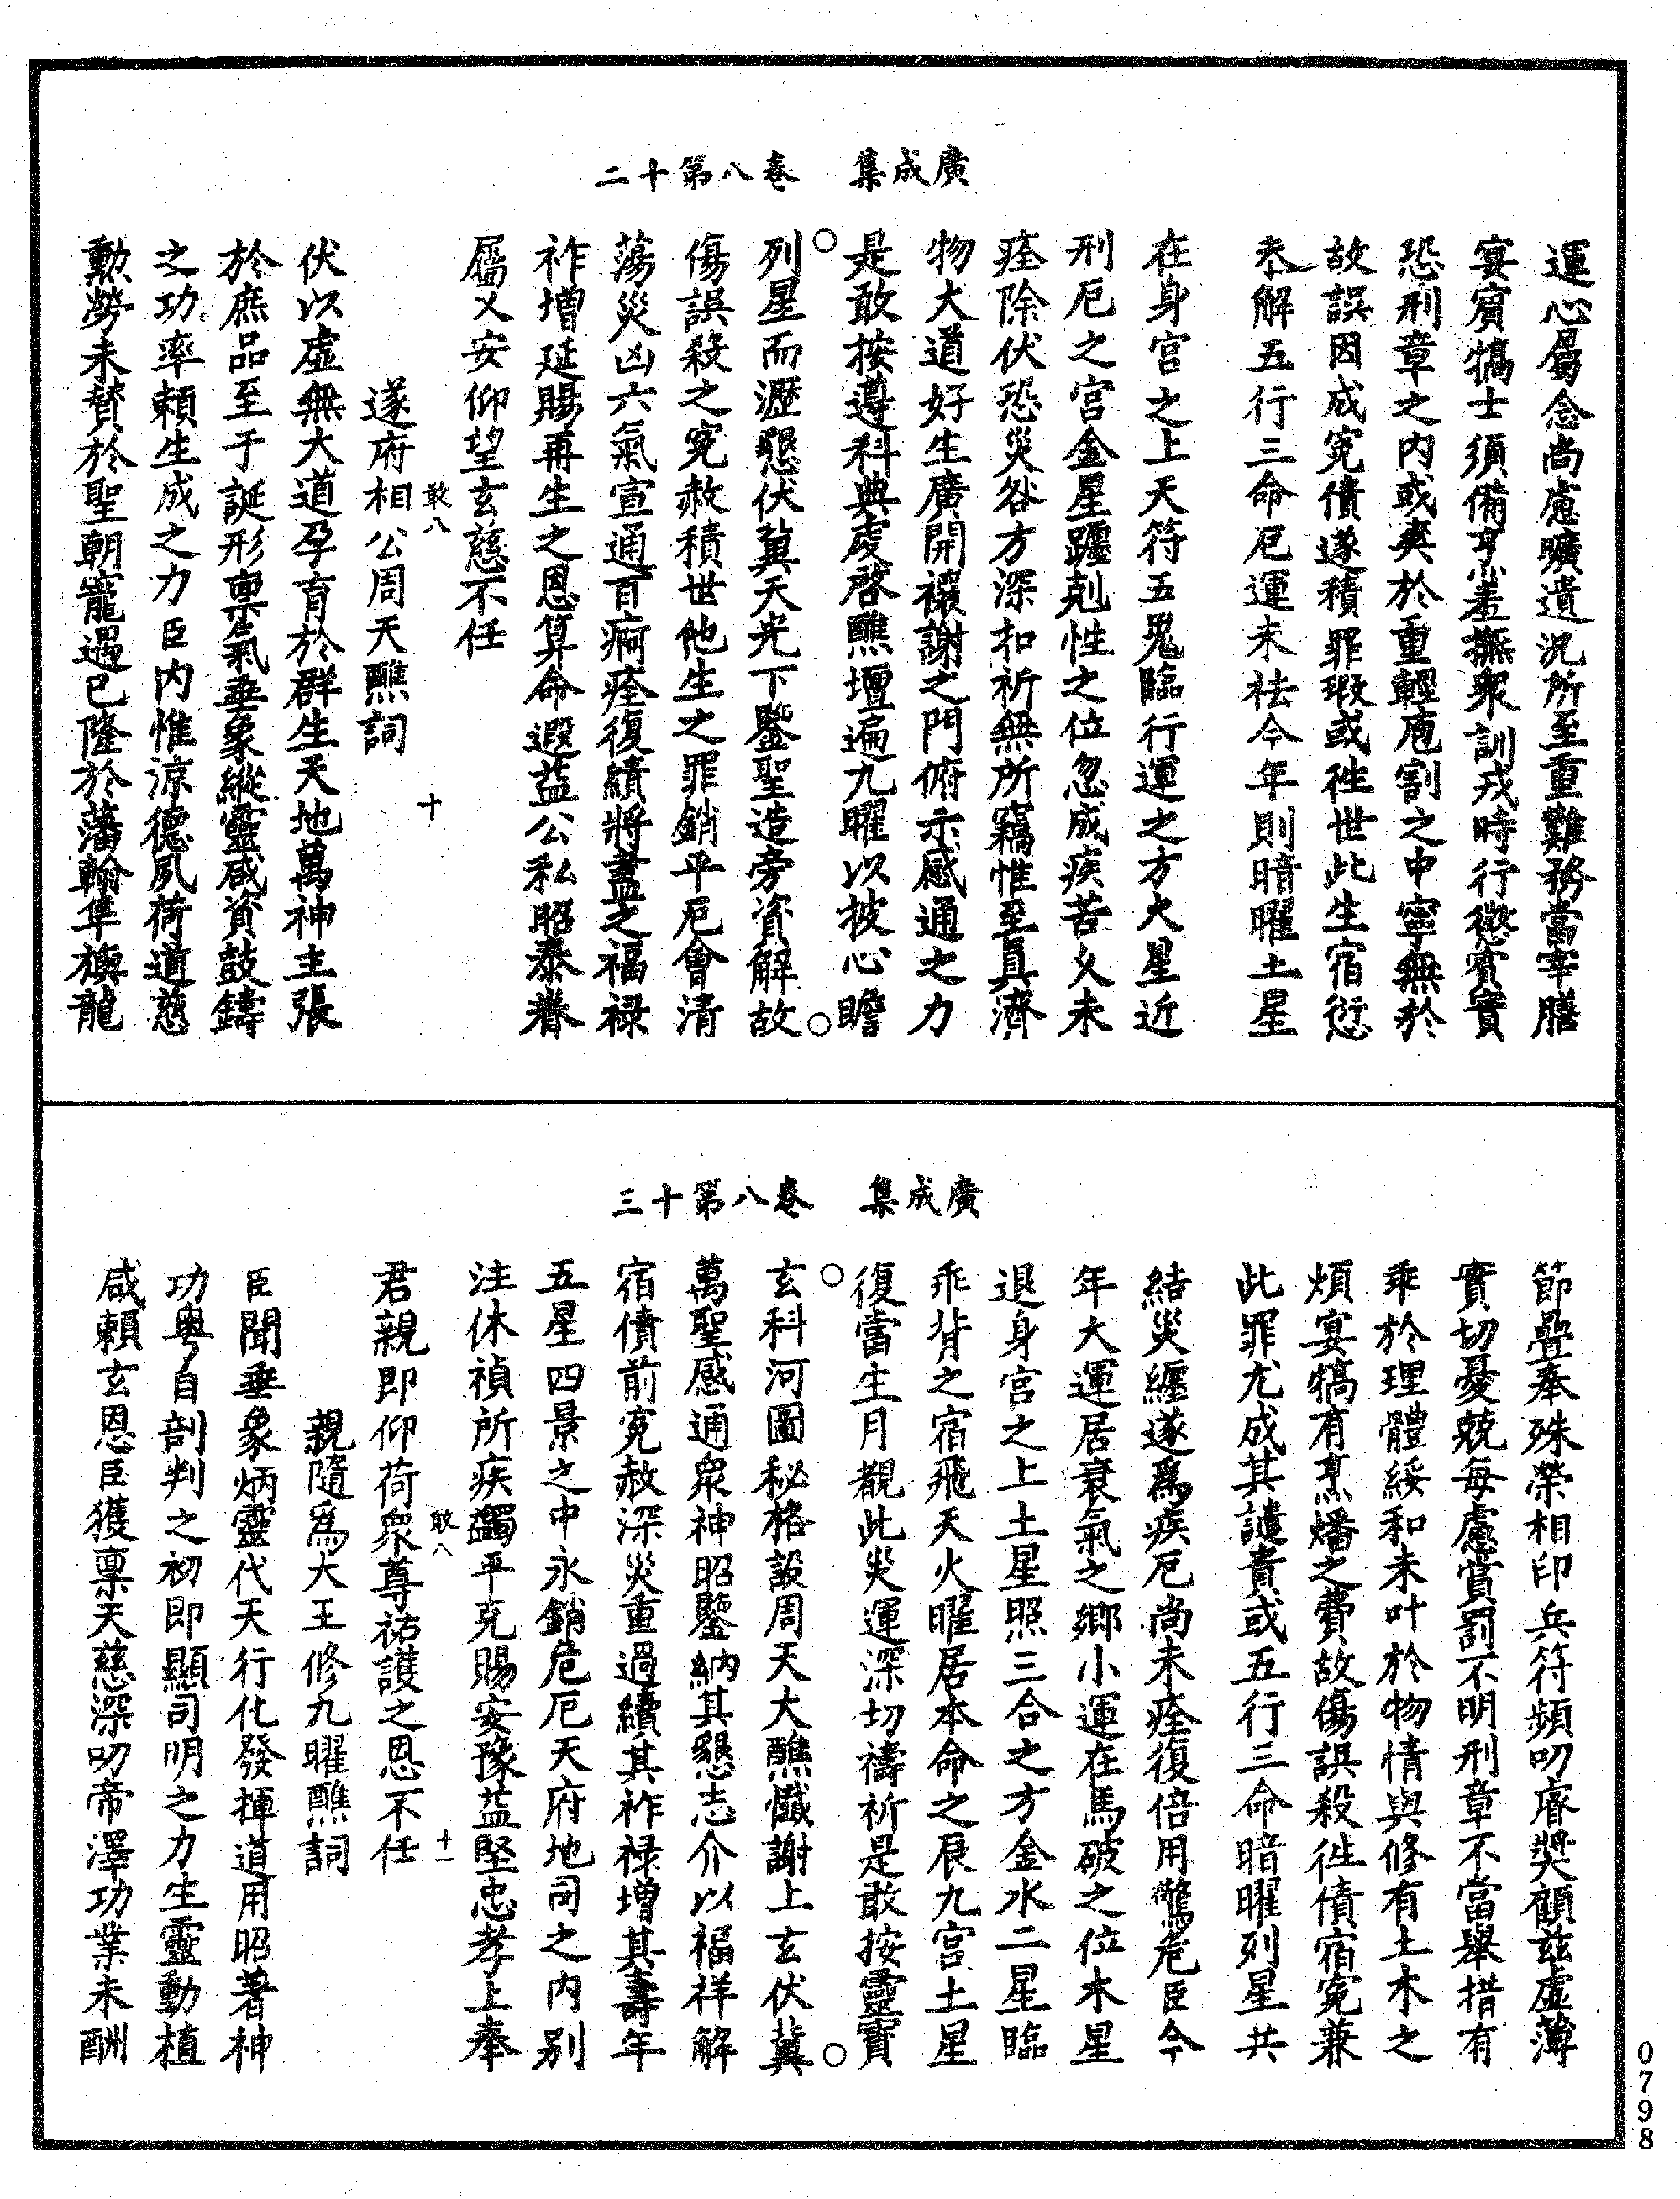 廣成集　卷八第十二
運心屬念尚慮曠遺況所至重難務當宰膳
宴賓犒士須備烹羞撫衆訓戎時行懲賞實
恐刑章之内或爽於重輕庖割之中寧無於
故誤因成寃債遂積罪瑕或徃世此生宿愆
未解五行三命厄運未袪今年則暗曜土星
在身宮之上天符五鬼臨行運之方火星近
刑厄之宮金星躔剋性之位忽成疾苦久未
痊除伏恐災咎方深扣祈無所竊惟至真濟
物大道好生廣開禳謝之門俯示感通之力
是敢按遵科典虔啓醮壇遍九曜以披心瞻
列星而瀝懇伏冀天光下鑒聖造旁資解故
傷誤殺之寃赦積世他生之罪銷平厄會清
蕩災凶六氣宣通百痾痊復績將盡之福禄
祚增延賜再生之恩算命遐益公私昭泰眷
屬乂安仰望玄慈不任
敢八　十
遂府相公周天醮詞
伏以虛無大道孕育於群生天地萬神主張
於庶品至于誕形稟氣垂象縱靈咸資鼓鑄
之功率賴生成之力臣内惟涼德夙荷道慈
勲勞未贊於聖朝寵遇已隆於藩翰隼旟龍
廣成集　卷八第十三
節疊奉殊榮相印兵符頻叨睿奬顧兹虛薄
實切憂兢每慮賞罰不明刑章不當舉措有
乖於理體綏和未叶於物情與修有土木之
煩宴犒有烹燔之費故傷誤殺徃債宿寃兼
此罪尤成其譴責或五行三命暗曜列星共
結災纏遂爲疾厄尚未痊復倍用驚危臣今
年大運居衰氣之鄉小運在馬破之位木星
退身宮之上土星照三合之方金水二星臨
乖背之宿飛天火曜居本命之辰九宮土星
復當生月覩此災運深切禱祈是敢按靈寶
玄科河圖秘格設周天大醮懺謝上玄伏冀
萬聖感通衆神昭鑒納其懇志介以福祥解
宿債前寃赦深災重過續其祚禄增其壽年
五星四景之中永銷危厄天府地司之内别
注休禎所疾蠲平克賜安豫益堅忠孝上奉
君親即仰荷衆尊祐護之恩不任
敢八　十一
親隨爲大王修九曜醮詞
臣聞垂象炳靈代天行化發揮道用昭著神
功粤自剖判之初即顯司明之力生靈動植
咸賴玄恩臣獲稟天慈深叨帝澤功業未酬
0798